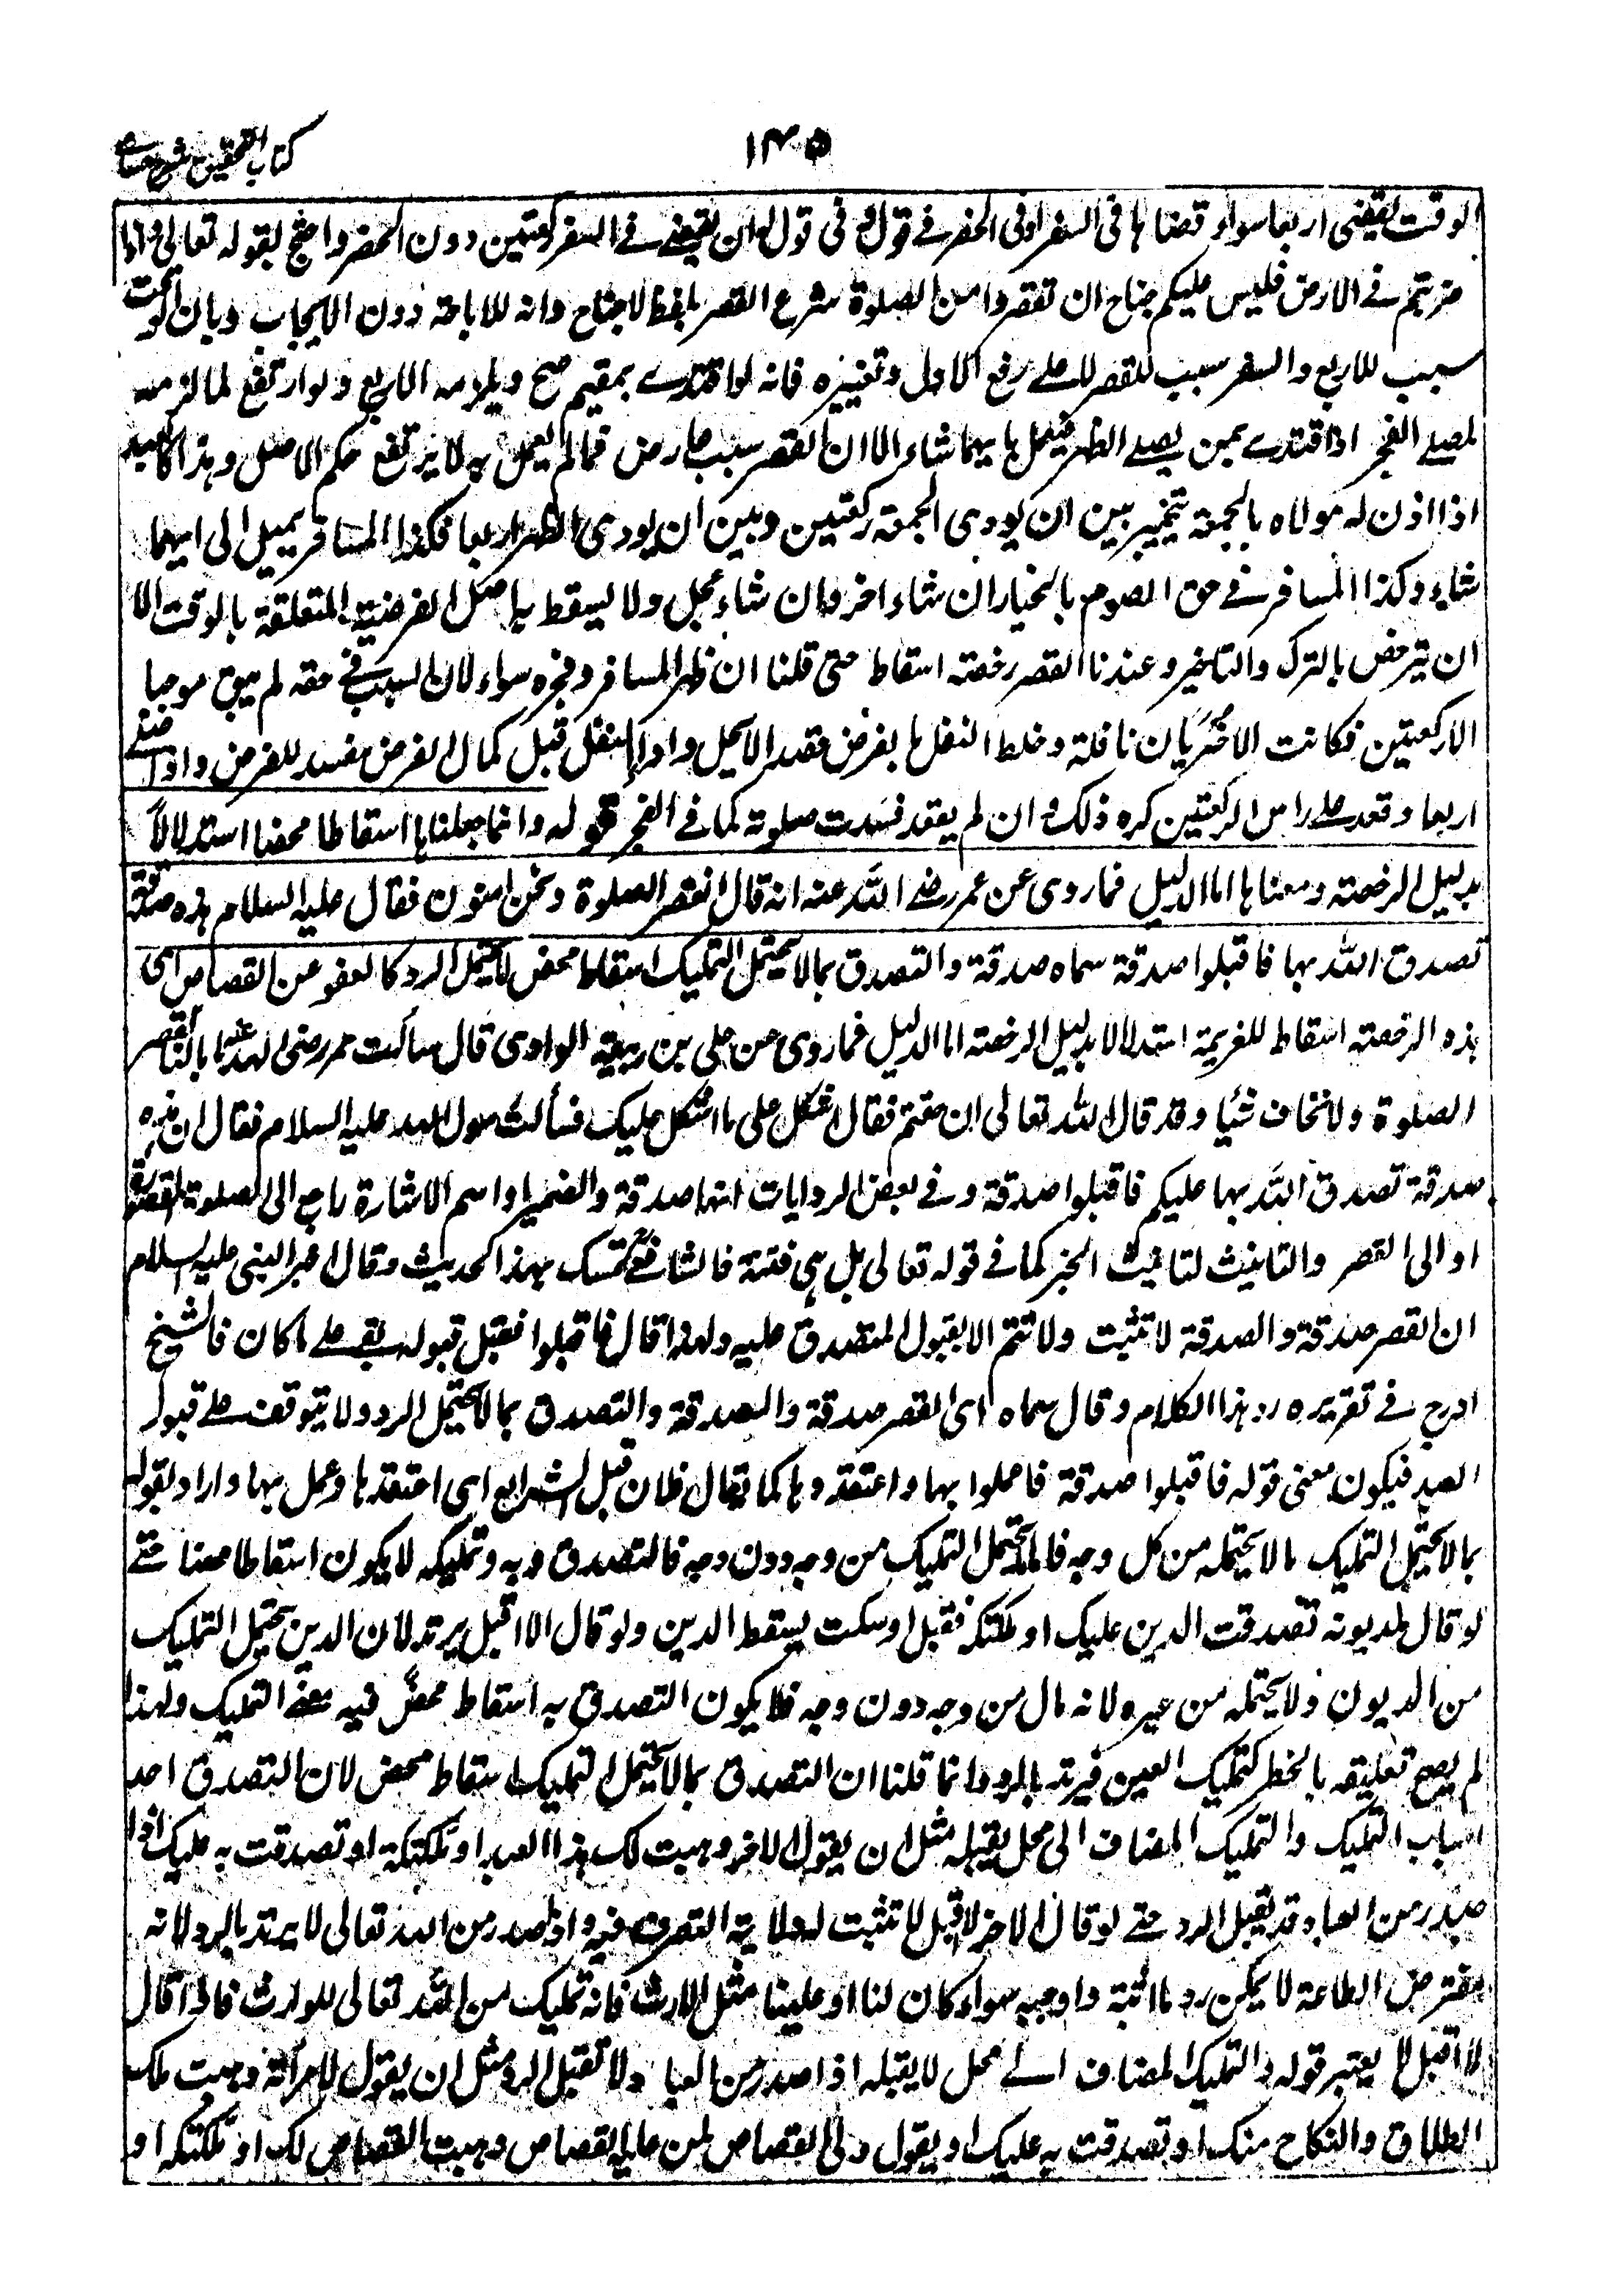 ١٣٥
كتاب التحقيق شرح حسامى
الوقت يقضى اربعا سواء قضاها فى السفر او فى الحضر فے قول و فى قول ان يقضے فے السفر ركعتين دون الحضر واحتج بقوله تعالى و اذا
ضربتم فے الارض فليس عليكم جناح ان تقصروا من الصلوة شرع القصر بلفظ لاجناح وانه للاباحة دون الايجاب وبان الوقت
سبب للاربع والسفر سبب للقصر لا علے رفع الاول وتغييره فانه لو اقتدے بمقيم صح ويلزمه الاربع ولو ارتفع لما لزمه
لمصلے الفجر اذا اقتدے بمن يصلے الظهر فيعمل بايهما شاء الا ان القصر سبب عارض فما لم يعمل به لا يرتفع حكم الاصل وهذا كالعبد
اذا اذن له مولاه بالجمعة يتخير بين ان يودى الجمعة ركعتين وبين ان يودى الظهر اربعا فكذا المسافر يميل الى ايهما
شاء وكذا المسافر فے حق الصوم بالخيار ان شاء اخر وان شاء عجل ولا يسقط به اصل الفرضية المتعلقة بالوقت الا
ان يترخص بالترك والتاخير وعندنا القصر رخصة اسقاط حتى قلنا ان ظهر المسافر وفجره سواء لان السبب فے حقه لم يبق موجبا
الا ركعتين فكانت الاخريان نافلة وخلط النفل بالفرض قصدا لا يحل واداء النفل قبل كمال الفرض مفسد للفرض واذا صلے
اربعا وقعد علے راس الركعتين كره ذلك و ان لم يقعد فسدت صلوته كما فے الفجر قوله وانما جعلناها اسقاطا محضا استدلالا
بدليل الرخصة ومعناها اما الدليل فما روى عن عمر رضے الله عنه انه قال انقصر الصلوة ونحن امنون فقال عليه السلام هذه صدقة
تصدق الله بها فاقبلوا صدقة سماه صدقة والتصدق بما لا يحتمل التمليك اسقاط محض لا يحتمل الرد كالعفو عن القصاص اى
هذه الرخصة اسقاط للعزيمة استدلالا بدليل الرخصة اما الدليل فما روى عن على بن ربيعة الوادى قال سألت عمر رضى الله عنه ما بالنا نقصر
الصلوة ولا نخاف شيئا وقد قال الله تعالى ان خفتم فقال اشكل على ما اشكل عليك فسألت رسول الله عليه السلام فقال ان هذه
صدقة تصدق الله بها عليكم فاقبلوا صدقة وفے بعض الروايات انها صدقة والضمير او اسم الاشارة راجع الى الصلوة المقصورة
او الى القصر والتانيث لتانيث الخبر كما فے قوله تعالى بل هى فتنة فالشافعے تمسك بهذا الحديث وقال اخبر النبى عليه السلام
ان القصر صدقة والصدقة لا تثبت ولا تتم الا بقبول المتصدق عليه ولهذا قال فاقبلوا فقبل قبوله يبقے علے ما كان فالشيخ
ادرج فے تقريره رد هذا الكلام وقال سماه اى القصر صدقة والصدقة والتصدق بما لا يحتمل الرد ولا يتوقف علے قبول
العبد فيكون معنى قوله فاقبلوا صدقة فاعملوا بها واعتقدوها كما يقال فلان قبل الشرايع اى اعتقدها وعمل بها واراد بقوله
بما لا يحتمل التمليك ما لا يحتمله من كل وجه فاما ما يحتمل التمليك من وجه دون وجه فالتصدق به وتمليكه لا يكون اسقاطا محضا حتے
لو قال لمديونه تصدقت الدين عليك او ملكتكه فقبل او سكت يسقط الدين ولو قال لا اقبل يرتد لان الدين يحتمل التمليك
من المديون ولا يحتمله من غيره ولانه مال من وجه دون وجه فلا يكون التصدق به اسقاط محض فيه معنے التمليك ولهذا
لم يصح تعليقه بالخطر كتمليك العين فيرتد بالرد وانما قلنا ان التصدق بما لا يحتمل التمليك اسقاط محض لان التصدق احد
اسباب التمليك والتمليك المضاف الى محل يقبله مثل ان يقول لاخر وهبت لك هذا العبد او ملكتكه او تصدقت به عليك اذا
صدر من العباد قد يقبل الرد حتے لو قال الاخر لا اقبل لا تثبت له ولاية التصرف فيه واذا صدر من الله تعالى لا يرتد بالرد لانه
مفترض الطاعة لا يمكن رد ما اثبته واوجبه سواء كان لنا او علينا مثل الارث فانه تمليك من الله تعالى للوارث فاذا قال
لا اقبل لا يعتبر قوله والتمليك المضاف الے محل لا يقبله اذا صدر من العباد لا تقبل الرد مثل ان يقول لامرأته وهبت ملك
الطلاق والنكاح منك او تصدقت به عليك او يقول ولى القصاص لمن عليه القصاص وهبت القصاص لك او ملكتكه او